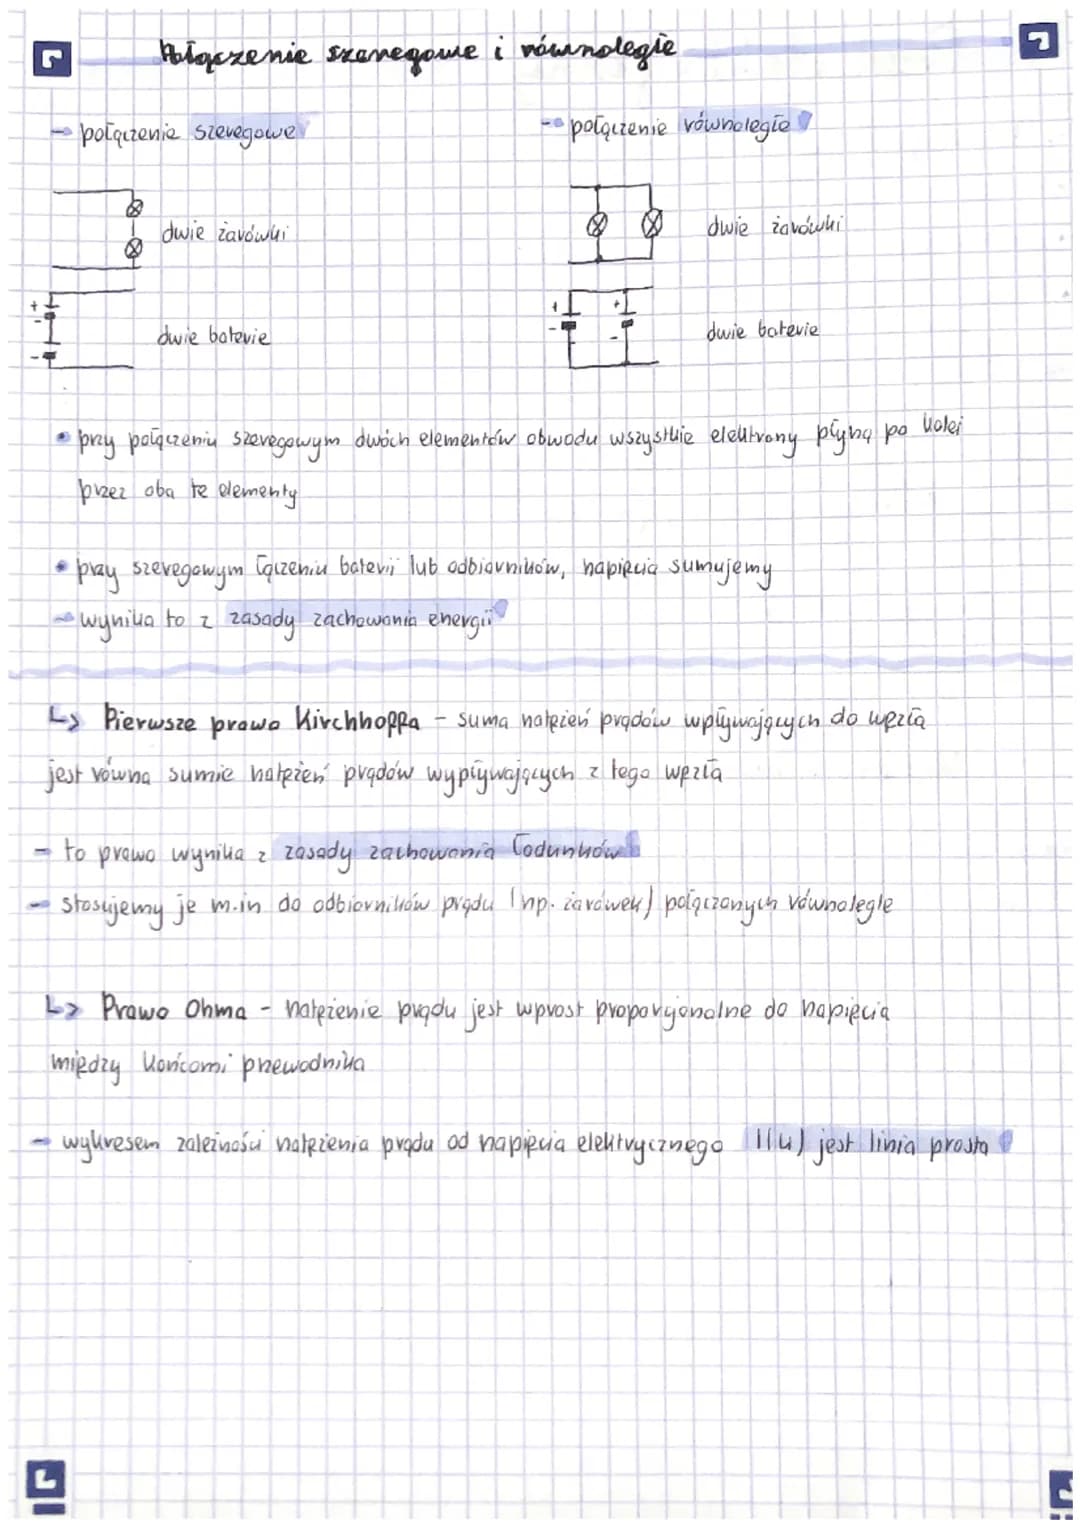 Połączenie szeregowe i równoległe
→ połączenie szeregowe
→ połączenie równoległe
dwie żarówki
dwie żarówki
+
-
-
dwie baterie
+
-
+
-
dwie baterie
• przy połączeniu szeregowym dwóch elementów obwodu wszystkie elektrony płyną po kolei
przez oba te elementy
• przy szeregowym łączeniu baterii lub odbiorników, napięcia sumujemy
→ wynika to z zasady zachowania energii
↳ Pierwsze prawo Kirchhoffa - suma natężeń prądów wpływających do węzła
jest równa sumie natężeń prądów wypływających z tego węzła
- to prawo wynika z zasady zachowania ładunków
- stosujemy je m.in do odbiorników prądu (np. żarówek) połączonych równolegle
↳ Prawo Ohma - natężenie prądu jest wprost proporcjonalne do napięcia
między końcami przewodnika
- wykresem zależności natężenia prądu od napięcia elektrycznego I(u) jest linia prosta